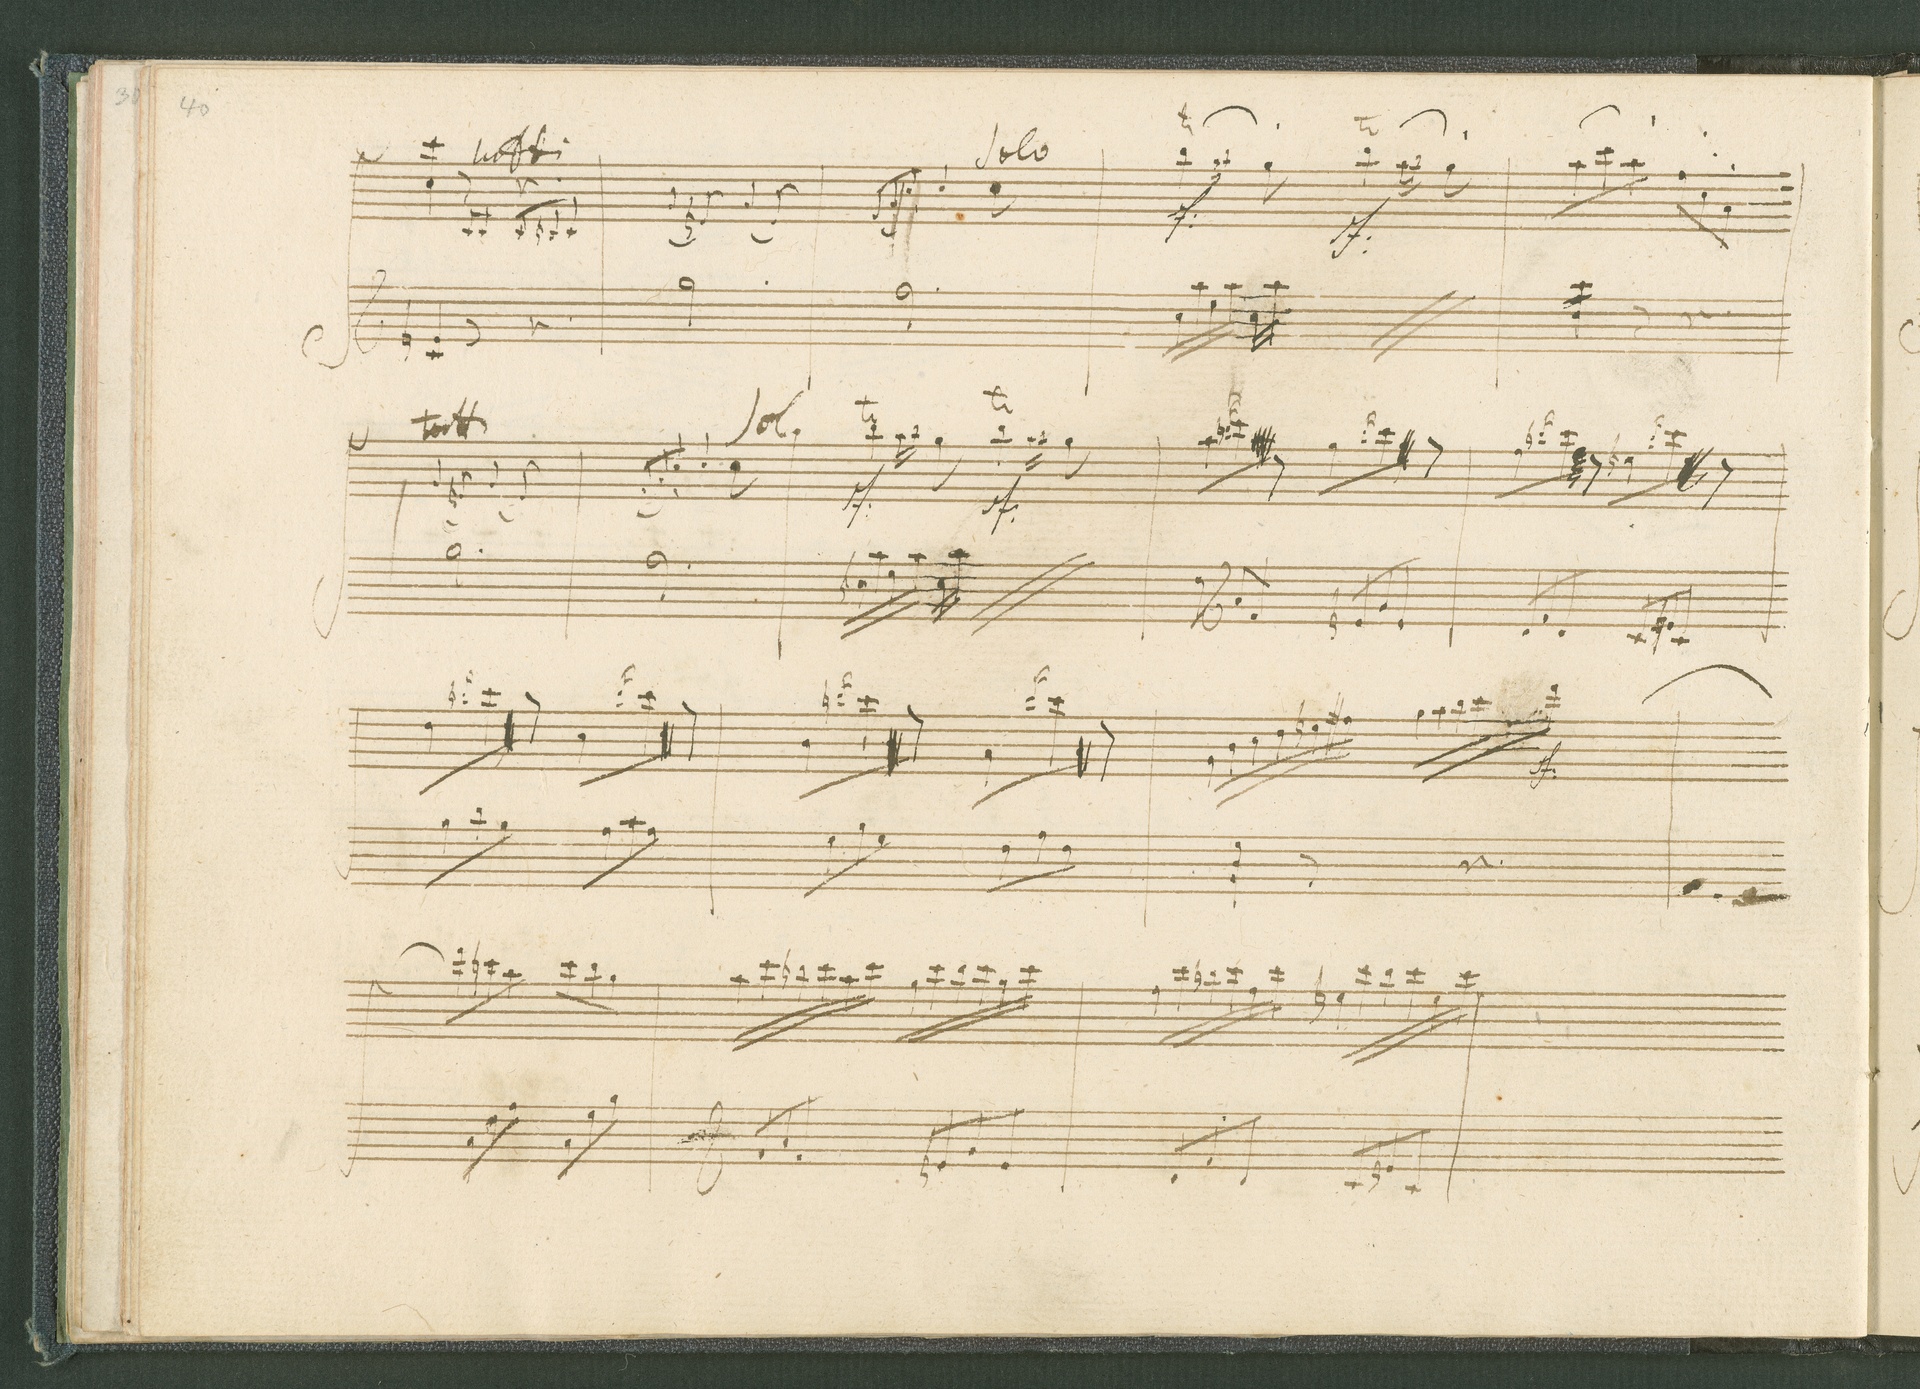 30 40
tutti Solo tr tr
sf. sf.
tutti Sol. tr tr
sf. sf.
sf.